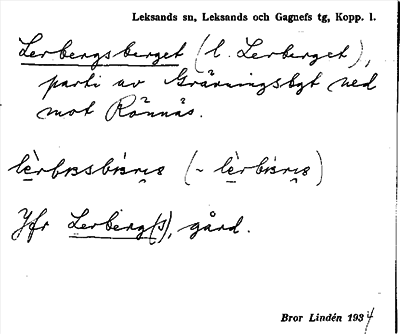 Leksands sn, Leksands och Gagnefs tg, Kopp. l.
Lerbergsberget (l. Lerberget),
parti av Grävningsbgt ned
mot Rönnäs.
(~
Jfr Lerberg(s), gård.
Bror Lindén 1934